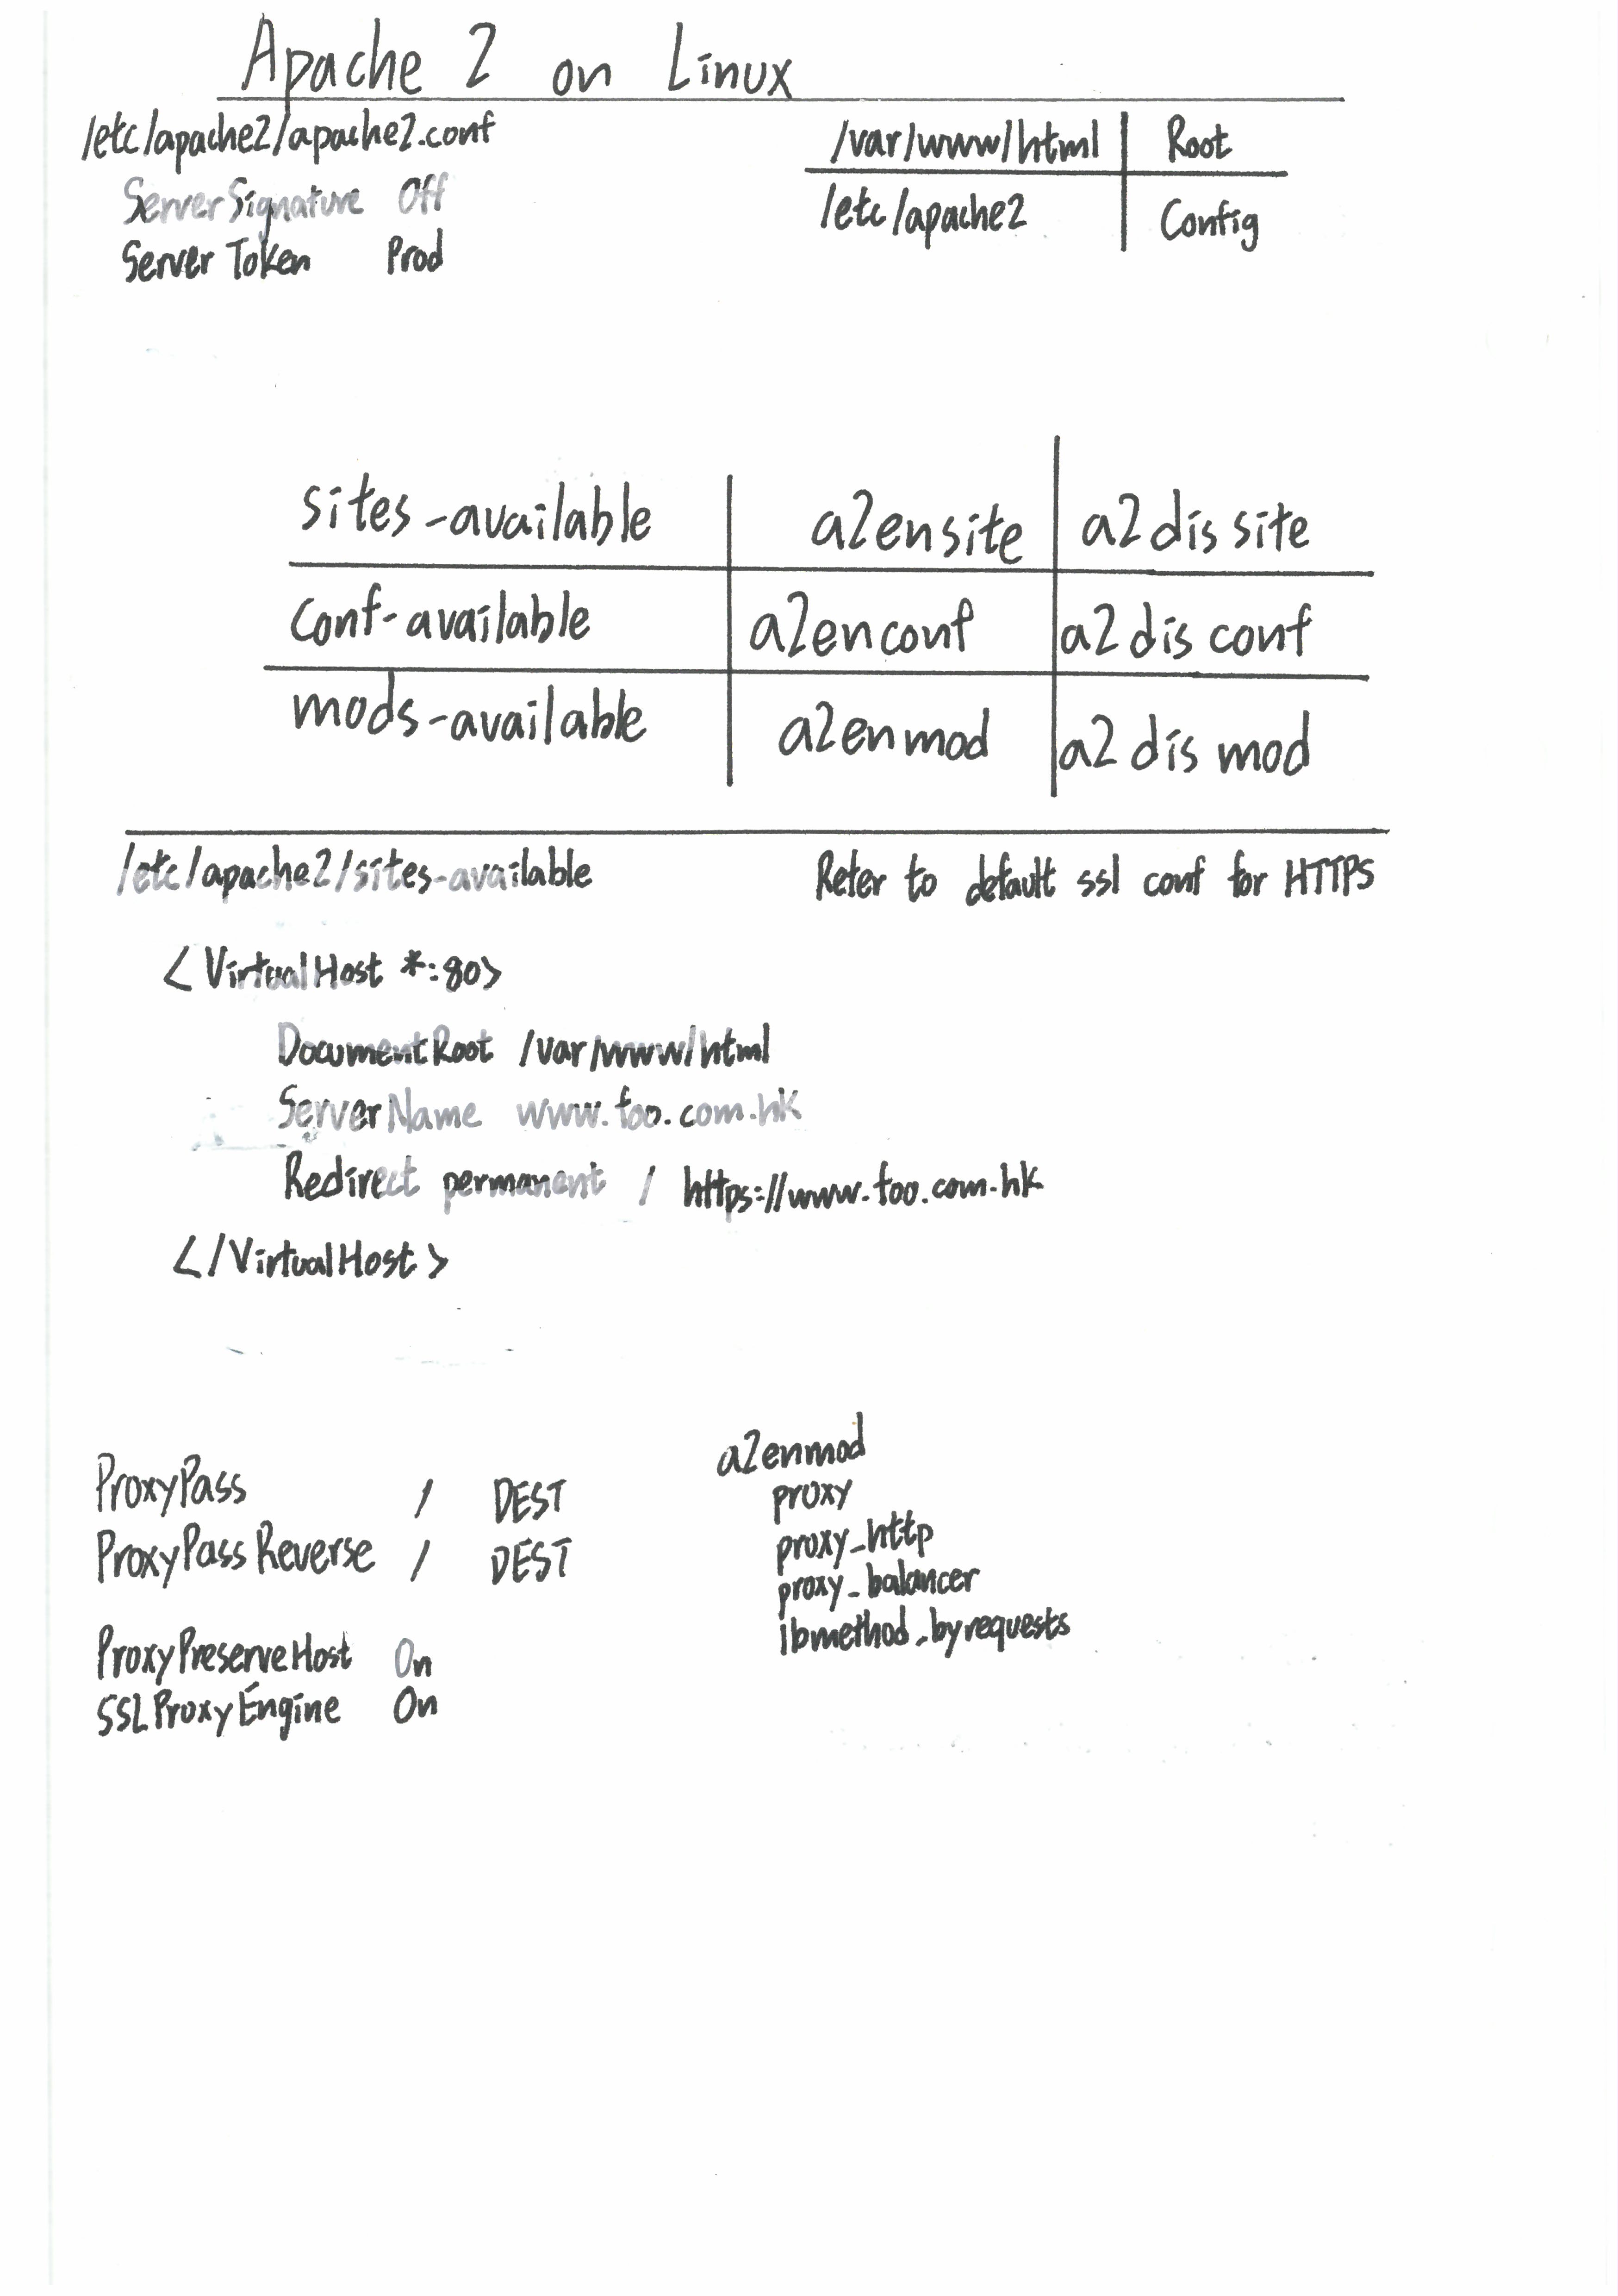 Apache 2 on Linux
/etc/apache2/apache2.conf
ServerSignature Off
Server Token Prod
/var/www/html Root
/etc/apache2 Config
sites-available a2ensite a2dissite
conf-available a2enconf a2disconf
mods-available a2enmod a2dismod
/etc/apache2/sites-available
Refer to default ssl conf for HTTPS
<VirtualHost *:80>
DocumentRoot /var/www/html
ServerName www.foo.com.hk
Redirect permanent / https://www.foo.com.hk
</VirtualHost>
ProxyPass / DEST
ProxyPassReverse / DEST
ProxyPreserveHost On
SSLProxyEngine On
a2enmod
proxy
proxy_http
proxy_balancer
lbmethod_byrequests